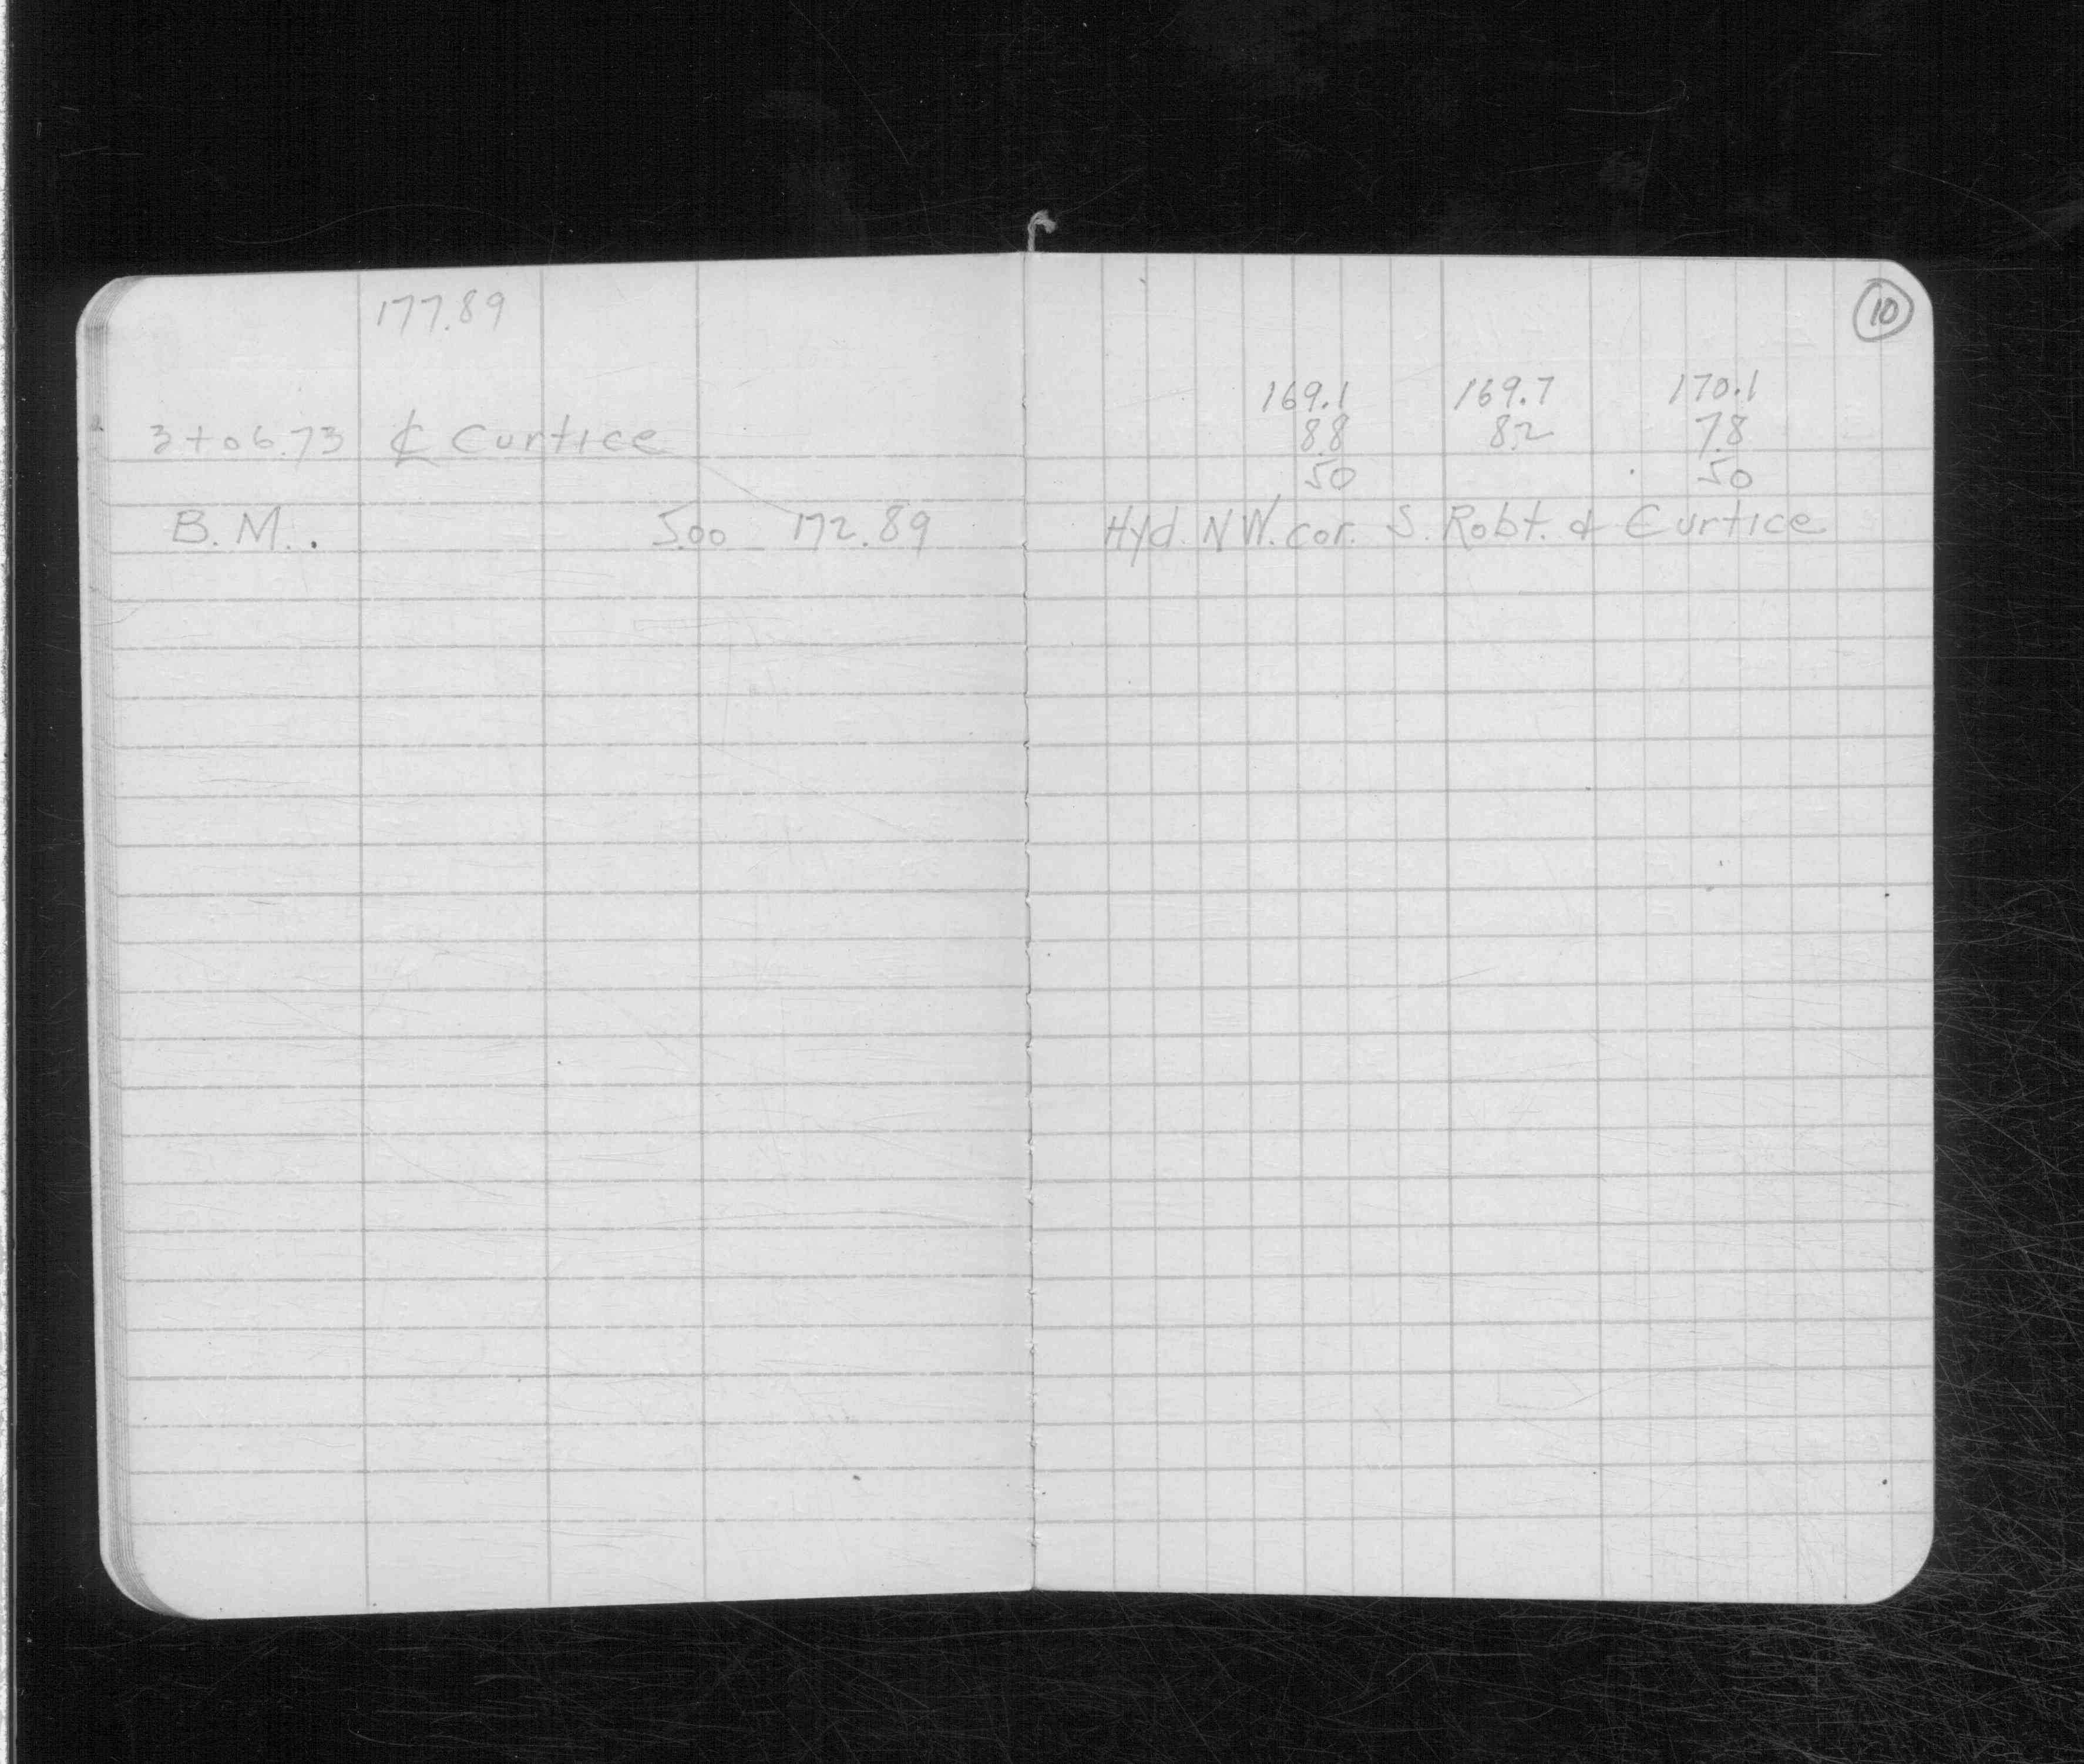 177.89
3+06.73 ℄ Curtice
B.M. 5.00 172.89
10
169.1 169.7 170.1
8.8 8.2 7.8
50 50
Hyd. N W. cor. S. Robt. & Curtice